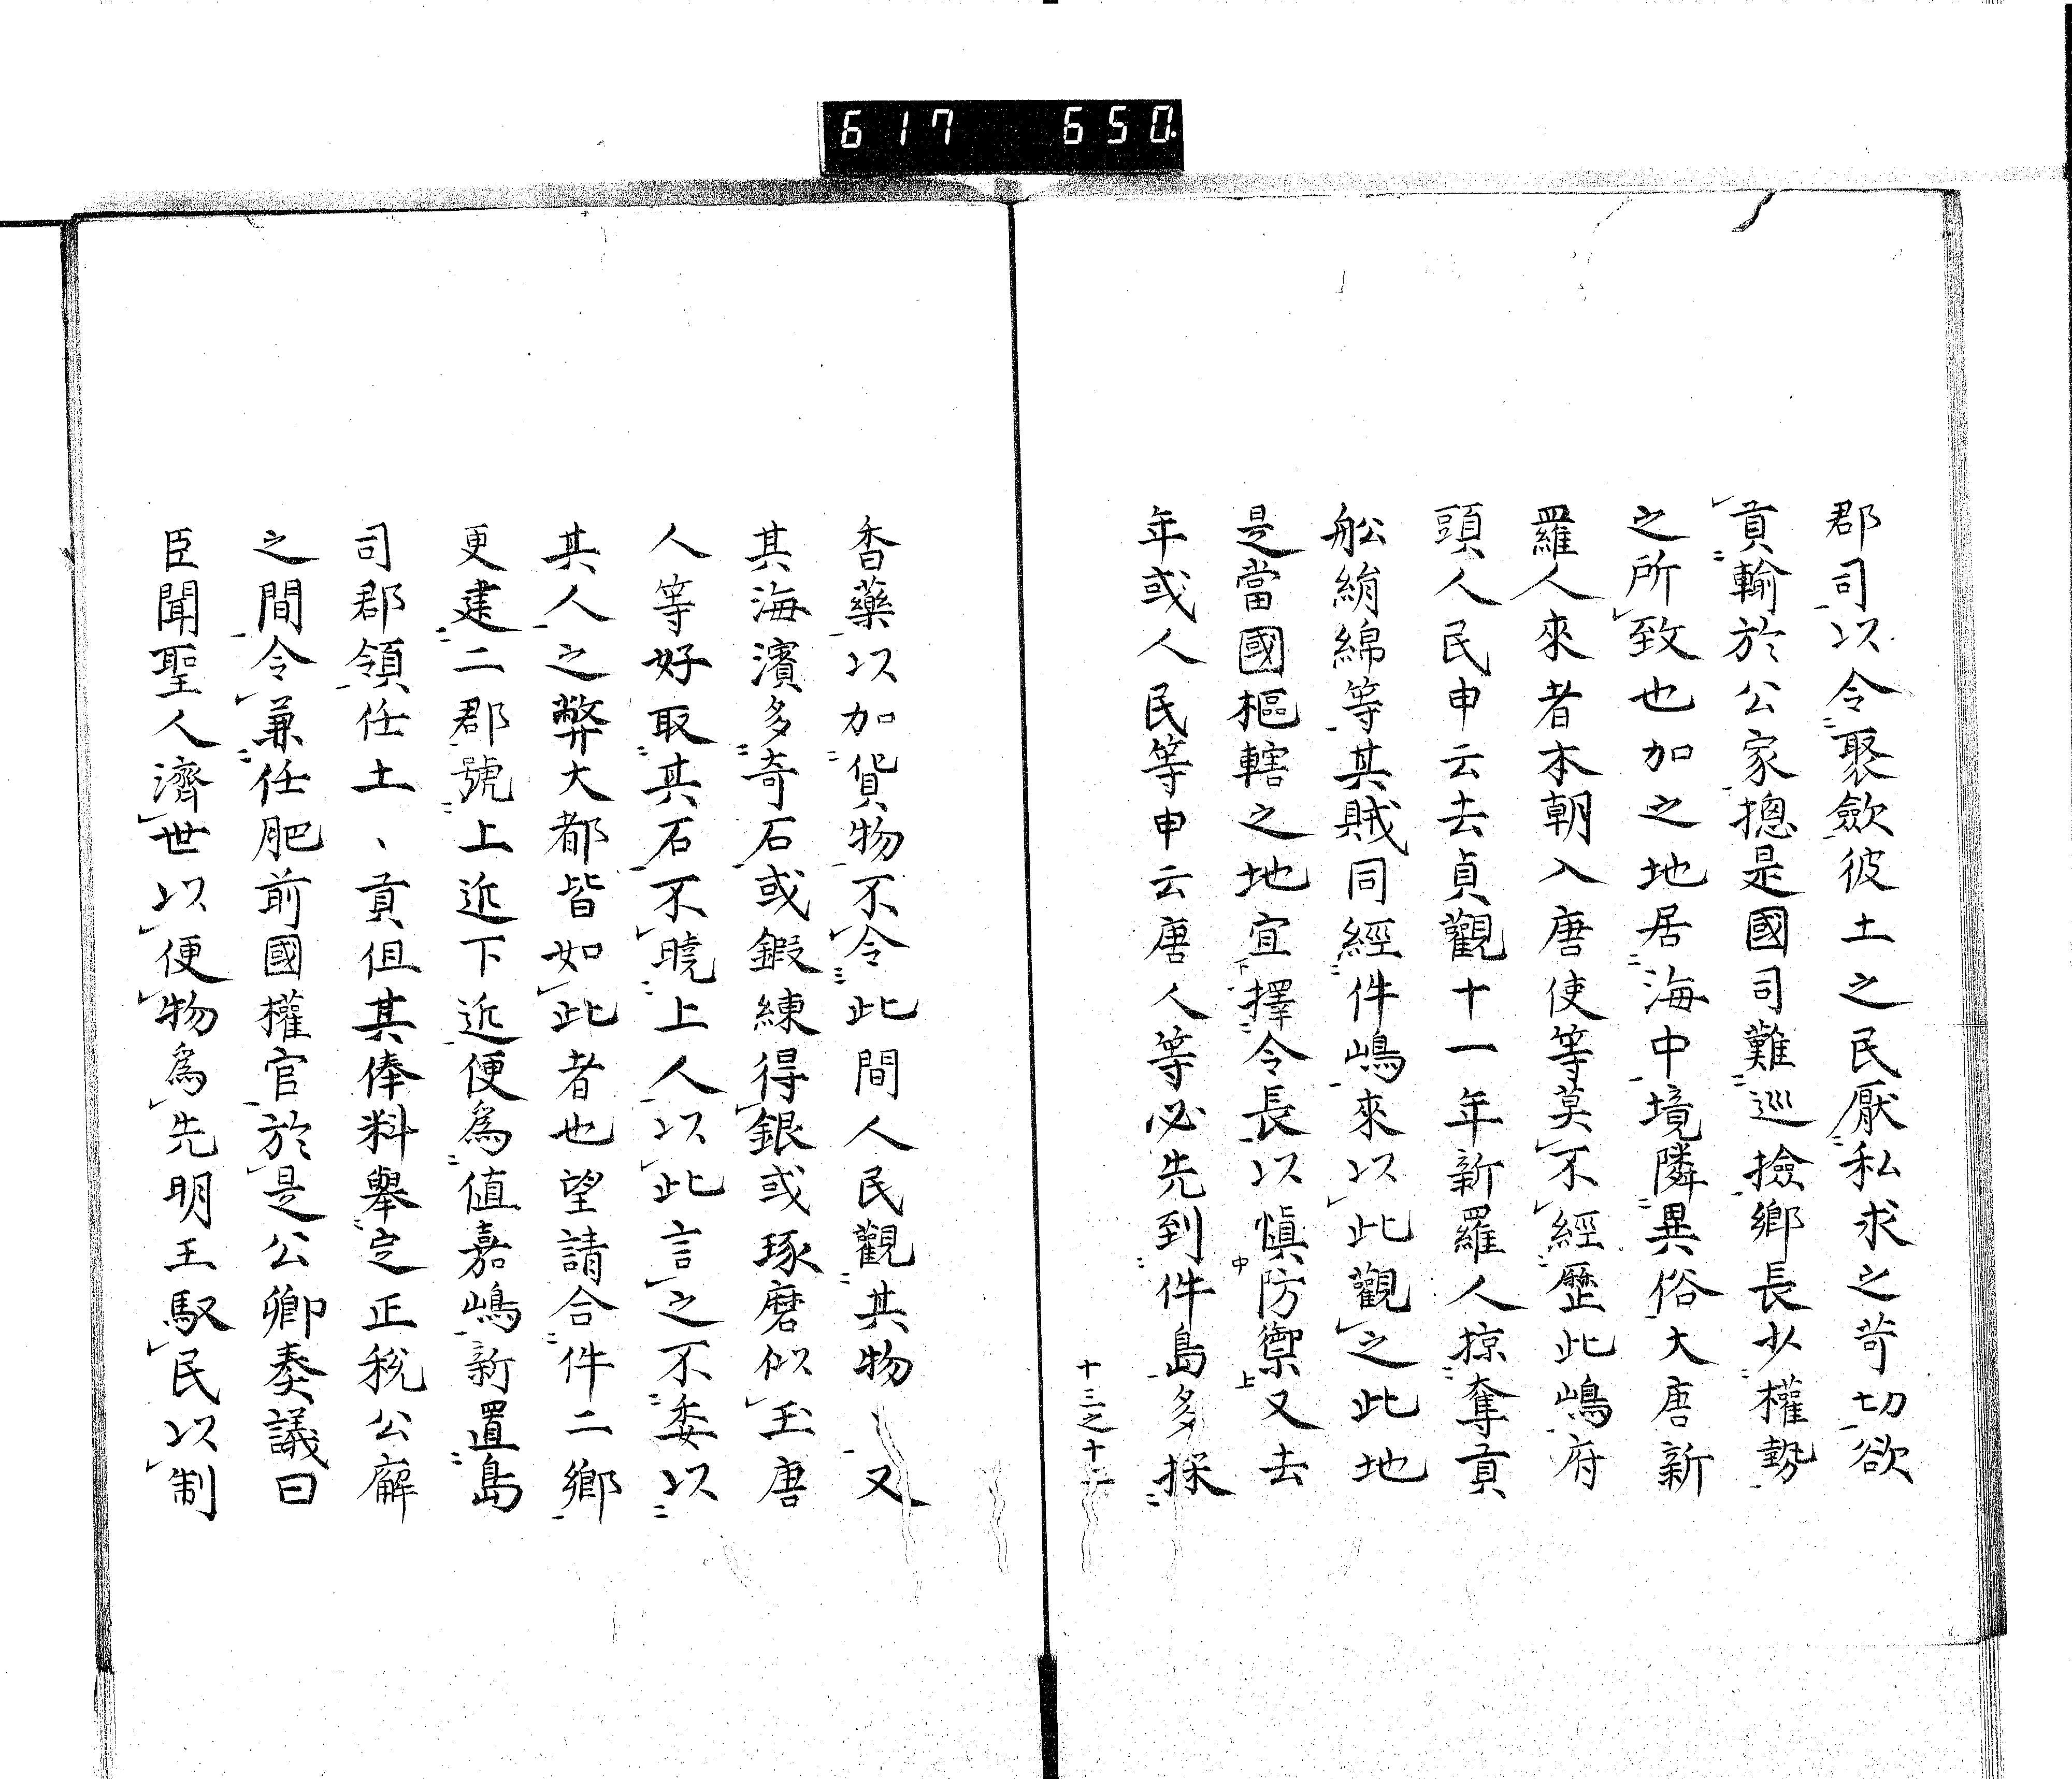 617 650.
郡司以令聚歛彼土之民厭私求之苛切欲
貢輸於公家摠是國司難巡撿鄉長少權勢
之所致也加之地居海中境隣異俗大唐新
羅人來者本朝入唐使等莫不經歷此嶋府
頭人民申云去貞觀十一年新羅人掠奪貢
舩絹綿等其賊同經件嶋來以此觀之此地
是當國樞轄之地宜擇令長以愼防禦又去
年或人民等申云唐人等必先到件島多採
十三之十六
香藥以加貨物不令此間人民觀其物、又
其海濱多奇石或鍛練得銀或琢磨似玉唐
人等好取其石不曉上人以此言之不委以
其人之弊大都皆如此者也望請合件二鄉
更建二郡號上近下近便爲値嘉嶋新置島
司郡領任土、貢但其俸料擧定正稅公廨
之間令兼任肥前國權官於是公卿奏議曰
臣聞聖人濟世以便物爲先明王馭民以制